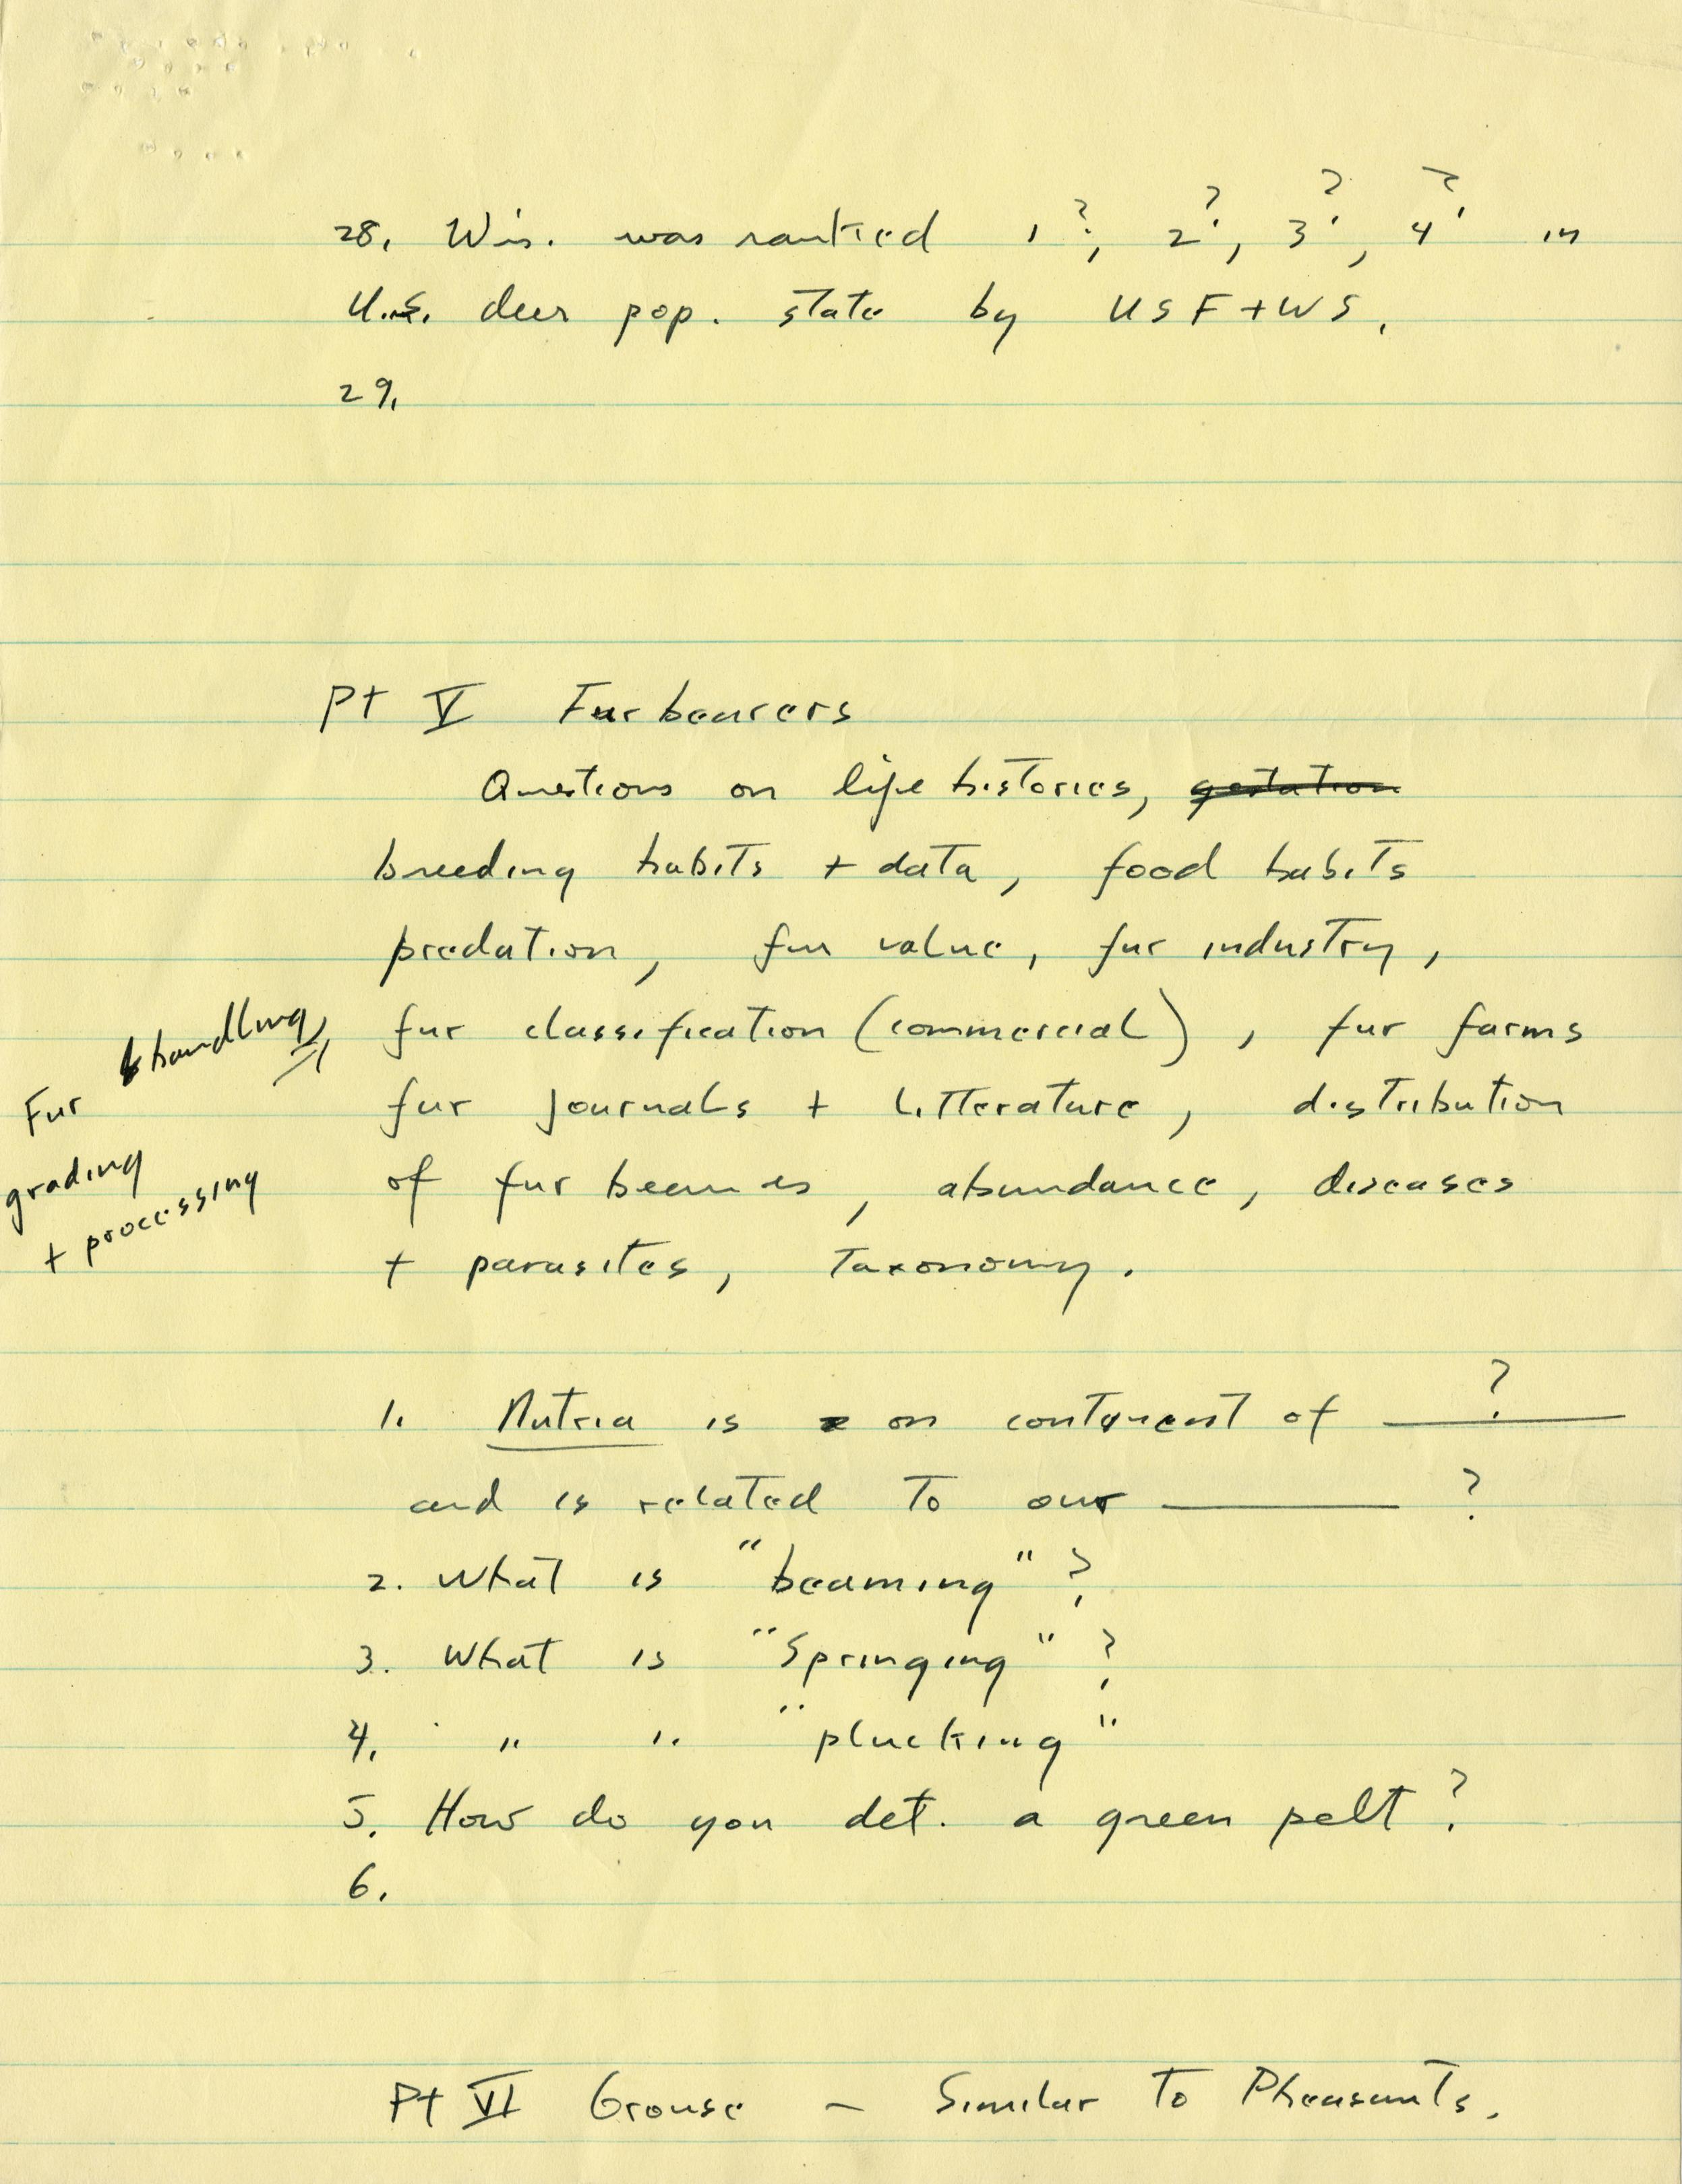 28. Wis. was ranked 1?, 2?, 3?, 4? in
U.S. deer pop. state by USF+WS.
29.
Pt V Fur bearers
Questions on life histories, gestation
breeding habits + data, food habits
predation, fur value, fur industry,
fur classification (commercial), fur farms
fur journals + litterature, distribution
of fur bearers, abundance, diseases
+ parasites, taxonomy.
Fur handling,
grading
+ processing
1. Nutria is on continent of ______?
and is related to our ______ ?
2. What is "beaming"?
3. What is "Springing"?
4. " " "plucking"
5. How do you det. a green pelt?
6.
Pt VI Grouse - Similar to Pheasants.